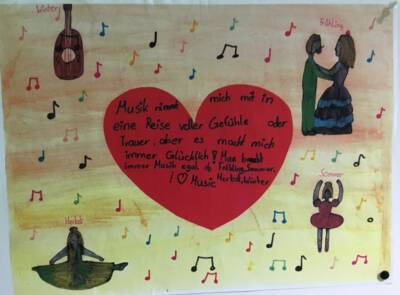 Winter
Frühling
Musik nimmt mich mit in
eine Reise voller Gefühle oder
Trauer, aber es macht mich
immer Glücklich! Man braucht
immer Musik egal ob Frühling, Sommer,
Herbst, Winter
I ♡ Music
Sommer
Herbst